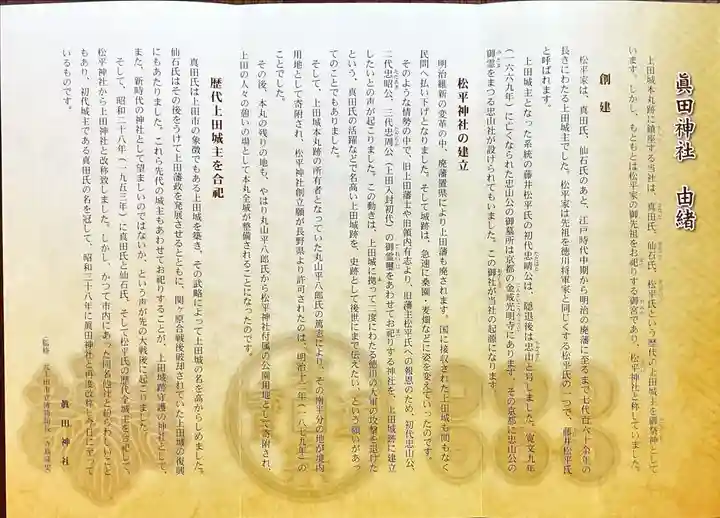 眞田神社 由緒
上田城本丸跡に鎮座する当社は、真田氏、仙石氏、松平氏という歴代の上田城主を御祭神として
います。しかし、もともとは松平家の御先祖をお祀りする御宮であり、松平神社と称していました。
創建
松平家は、真田氏、仙石氏のあと、江戸時代中期から明治の廃藩に至るまで七代百六十余年の
長きにわたる上田城主でした。松平家は先祖を徳川将軍家と同じくする松平氏の一つで、藤井松平氏
と呼ばれます。
上田城主となった系統の藤井松平氏の初代忠晴公は、隠退後は忠山と号しました。寛文九年
(一六六九年)に亡くなられた忠山公の御墓所は京都の金戒光明寺にあります。その京都に忠山公の
御霊をまつる忠山社が設けられてもいました。この御社が当社の起源になります。
松平神社の建立
明治維新の変革の中、廃藩置県により上田藩も廃されます。国に接収された上田城も間もなく
民間へ払い下げとなりました。そして城跡は、急速に桑園・麦畑などに姿を変えていったのです。
そのような情勢の中で、旧上田藩士や旧領内有志より、旧藩主松平氏への報恩のため、初代忠山公、
二代忠昭公、三代忠周公(上田入封初代)の御霊璽をあわせてお祀りする神社を、上田城跡に建立
したいとの声が起こりました。この動きは、上田城に拠って二度にわたる徳川の大軍の攻撃を退けた
という、真田氏の活躍などで名高い上田城跡を、史跡として後世にまで伝えたい、という願いがあっ
てのことでもありました。
そして、上田城本丸跡の所有者となっていた丸山平八郎氏の篤志により、その南半分の地が境内
用地として寄附され、松平神社創立願が長野県より許可されたのは、明治十二年(一八七九年)の
ことでした。
その後、本丸の残りの地も、やはり丸山平八郎氏から松平神社付属の公園用地として寄附され、
上田の人々の憩いの場として本丸全域が整備されることになったのです。
歴代上田城主を合祀
真田氏は上田市の象徴でもある上田城を築き、その武略によって上田城の名を高からしめました。
仙石氏はその後をうけて上田藩政を発展させるとともに、関ヶ原合戦後破却されていた上田城の復興
にもあたりました。これら先代の城主もあわせてお祀りすることが、上田城跡守護の神社として、
また、新時代の神社として望ましいのではないか、という声が先の大戦後に起こりました。
そして、昭和二十八年(一九五三年)に真田氏と仙石氏、そして松平氏の歴代全城主を合祀して、
松平神社から上田神社と改称致しました。しかし、かつて市内にあった同名他社と紛らわしいこと
もあり、初代城主である真田氏の名を冠して、昭和三十八年に眞田神社と再度改称し今日に至って
いるものです。
眞田神社